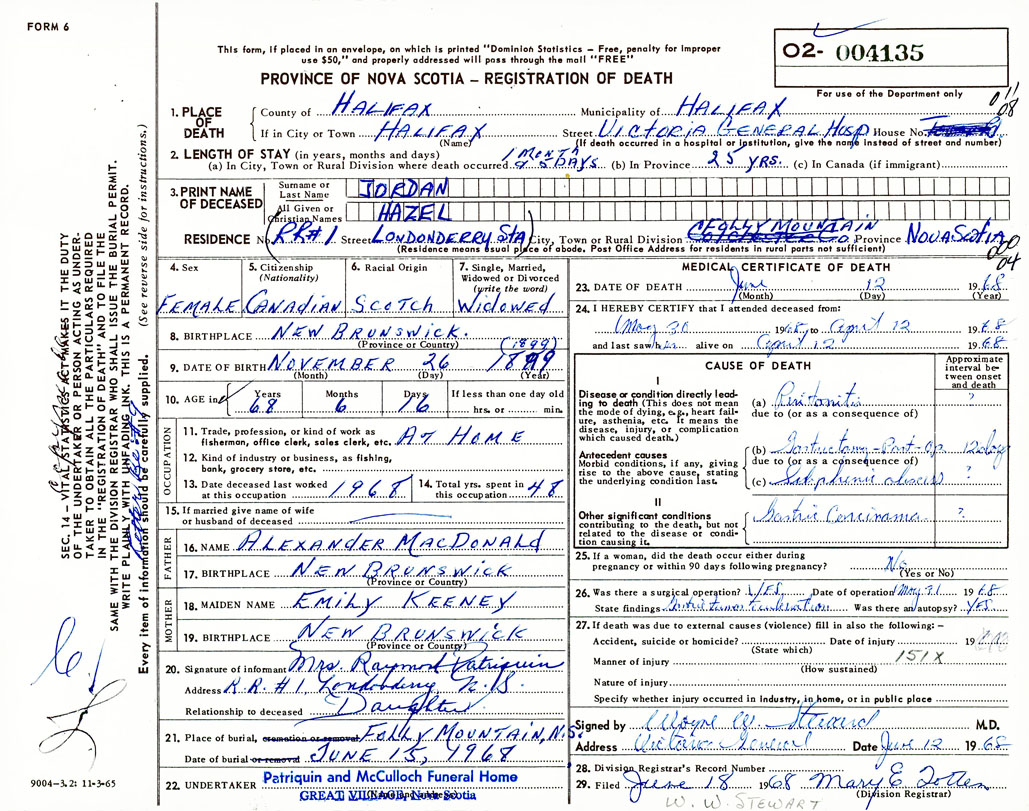 FORM 6
O2- 004135
This form, if placed in an envelope, on which is printed "Dominion Statistics – Free, penalty for improper
use $50," and properly addressed will pass through the mail "FREE"
PROVINCE OF NOVA SCOTIA – REGISTRATION OF DEATH
For use of the Department only
011
08
1. PLACE OF DEATH County of HALIFAX Municipality of HALIFAX
If in City or Town HALIFAX Street VICTORIA GENERAL HOSP House No.
(Name) (If death occurred in a hospital or institution, give the name instead of street and number)
2. LENGTH OF STAY (in years, months and days)
(a) In City, Town or Rural Division where death occurred 1 MONTH DAYS (b) In Province 25 YRS. (c) In Canada (if immigrant)
3. PRINT NAME OF DECEASED Surname or Last Name JORDAN
All Given or Christian Names HAZEL
RESIDENCE No. RR#1 Street LONDONDERRY STA City, Town or Rural Division FOLLY MOUNTAIN Province NOVA SCOTIA
(Residence means usual place of abode. Post Office Address for residents in rural parts not sufficient)
04
4. Sex FEMALE
5. Citizenship (Nationality) CANADIAN
6. Racial Origin SCOTCH
7. Single, Married, Widowed or Divorced (write the word) WIDOWED
8. BIRTHPLACE NEW BRUNSWICK.
(Province or Country) (1899)
9. DATE OF BIRTH NOVEMBER 26 1899
(Month) (Day) (Year)
10. AGE in Years 68 Months 6 Days 16 If less than one day old hrs. or min.
OCCUPATION
11. Trade, profession, or kind of work as fisherman, office clerk, sales clerk, etc. AT HOME
12. Kind of industry or business, as fishing, bank, grocery store, etc.
13. Date deceased last worked at this occupation 1968 14. Total yrs. spent in this occupation 48
15. If married give name of wife or husband of deceased
FATHER
16. NAME ALEXANDER MACDONALD
17. BIRTHPLACE NEW BRUNSWICK
(Province or Country)
MOTHER
18. MAIDEN NAME EMILY KEENEY
19. BIRTHPLACE NEW BRUNSWICK
(Province or Country)
20. Signature of informant Mrs. Raymond Patriquin
Address R.R. #1, Londonderry N.S.
Relationship to deceased Daughter
21. Place of burial, cremation or removal FOLLY MOUNTAIN, N.S.
Date of burial or removal JUNE 15, 1968
22. UNDERTAKER Patriquin and McCulloch Funeral Home
GREAT VILLAGE, Nova Scotia
MEDICAL CERTIFICATE OF DEATH
23. DATE OF DEATH June 12 1968
(Month) (Day) (Year)
24. I HEREBY CERTIFY that I attended deceased from:
May 30 1968, to April 12 1968
and last saw her alive on April 12 1968
CAUSE OF DEATH
Approximate interval between onset and death
I
Disease or condition directly leading to death (This does not mean the mode of dying, e.g., heart failure, asthenia, etc. It means the disease, injury, or complication which caused death.)
(a) Peritonitis ?
due to (or as a consequence of)
Antecedent causes
Morbid conditions, if any, giving rise to the above cause, stating the underlying condition last.
(b) Gastrectomy – Post-Op. 12 days
due to (or as a consequence of)
(c) Subphrenic abscess ?
II
Other significant conditions contributing to the death, but not related to the disease or condition causing it.
Gastric Carcinoma ?
25. If a woman, did the death occur either during pregnancy or within 90 days following pregnancy? No
(Yes or No)
26. Was there a surgical operation? YES Date of operation May 31 1968
State findings Was there an autopsy? YES
27. If death was due to external causes (violence) fill in also the following: –
Accident, suicide or homicide? Date of injury 19
(State which)
Manner of injury 151X
(How sustained)
Nature of injury
Specify whether injury occurred in Industry, in home, or in public place
Signed by Wayne W. Steward M.D.
Address Victoria General Date June 12 1968
28. Division Registrar's Record Number
29. Filed June 18 1968 Mary E. Totten
(Division Registrar)
W. W. STEWART
SEC. 14 – VITAL STATISTICS ACT MAKES IT THE DUTY
OF THE UNDERTAKER OR PERSON ACTING AS UNDER-
TAKER TO OBTAIN ALL THE PARTICULARS REQUIRED
IN THE "REGISTRATION OF DEATH" AND TO FILE THE
SAME WITH THE DIVISION REGISTRAR WHO SHALL ISSUE THE BURIAL PERMIT.
WRITE PLAINLY WITH UNFADING INK. THIS IS A PERMANENT RECORD.
Every item of information should be carefully supplied. (See reverse side for instructions.)
9004–3.2: 11-3-65